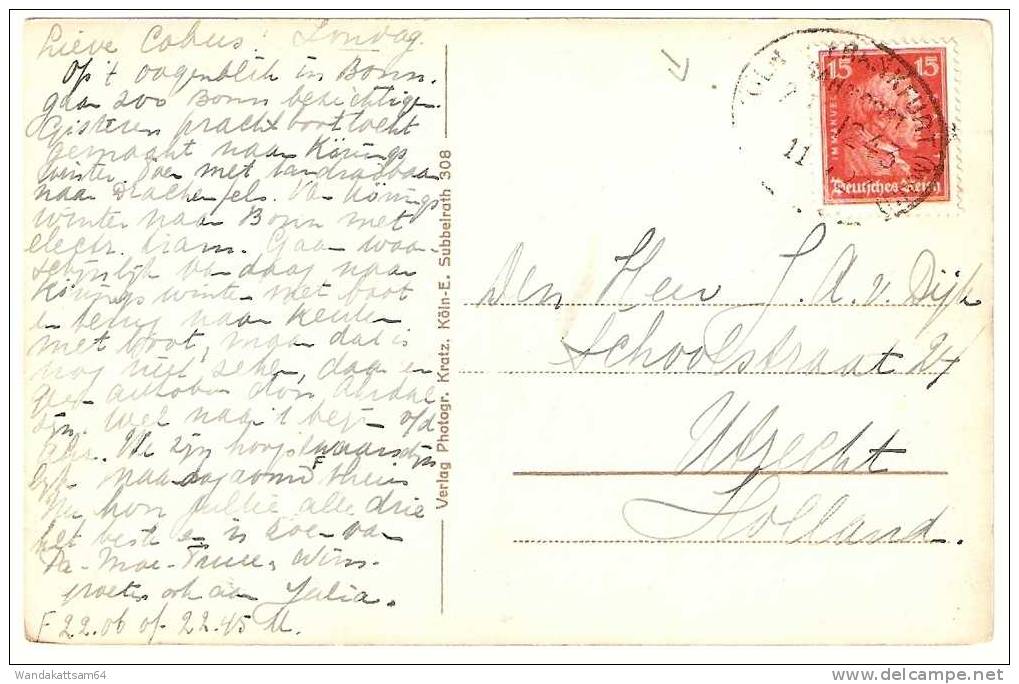 Lieve Cobus! Zondag.
Op 't oogenblik in Bonn.
gaan zoo Bonn bezichtigen.
Gisteren prachtboottocht
gemaakt naar Königs
winter. Toen met tandradbaan
naar Drachenfels. Van Königs
winter naar Bonn met
electr. tram. Gaan waar-
schijnlijk vandaag naar
Königswinter met boot
en terug naar Keulen
met boot, maar dat is
nog niet zeker, daar er
geen autobus
zijn. Wel naar 't
We zijn hoogstwaarschijn
lijk maandagavond thuis
Nu hoor jullie alle drie
het beste en 'n zoen van
Pa-Moe-Truce, Wim.
groeten ook aan Julia.
F 22.06 of 22.45 U.
Verlag Photogr. Kratz. Köln-E. Subbelrath 308
15 15
IMMANUEL
Deutsches Reich
FRANKFURT (M)
BAHNPOST
1243
11
Den Heer J. A. v. Dijk
Schoolstraat 24
Utrecht
Holland.
Wandakattsam64
delcampe.net